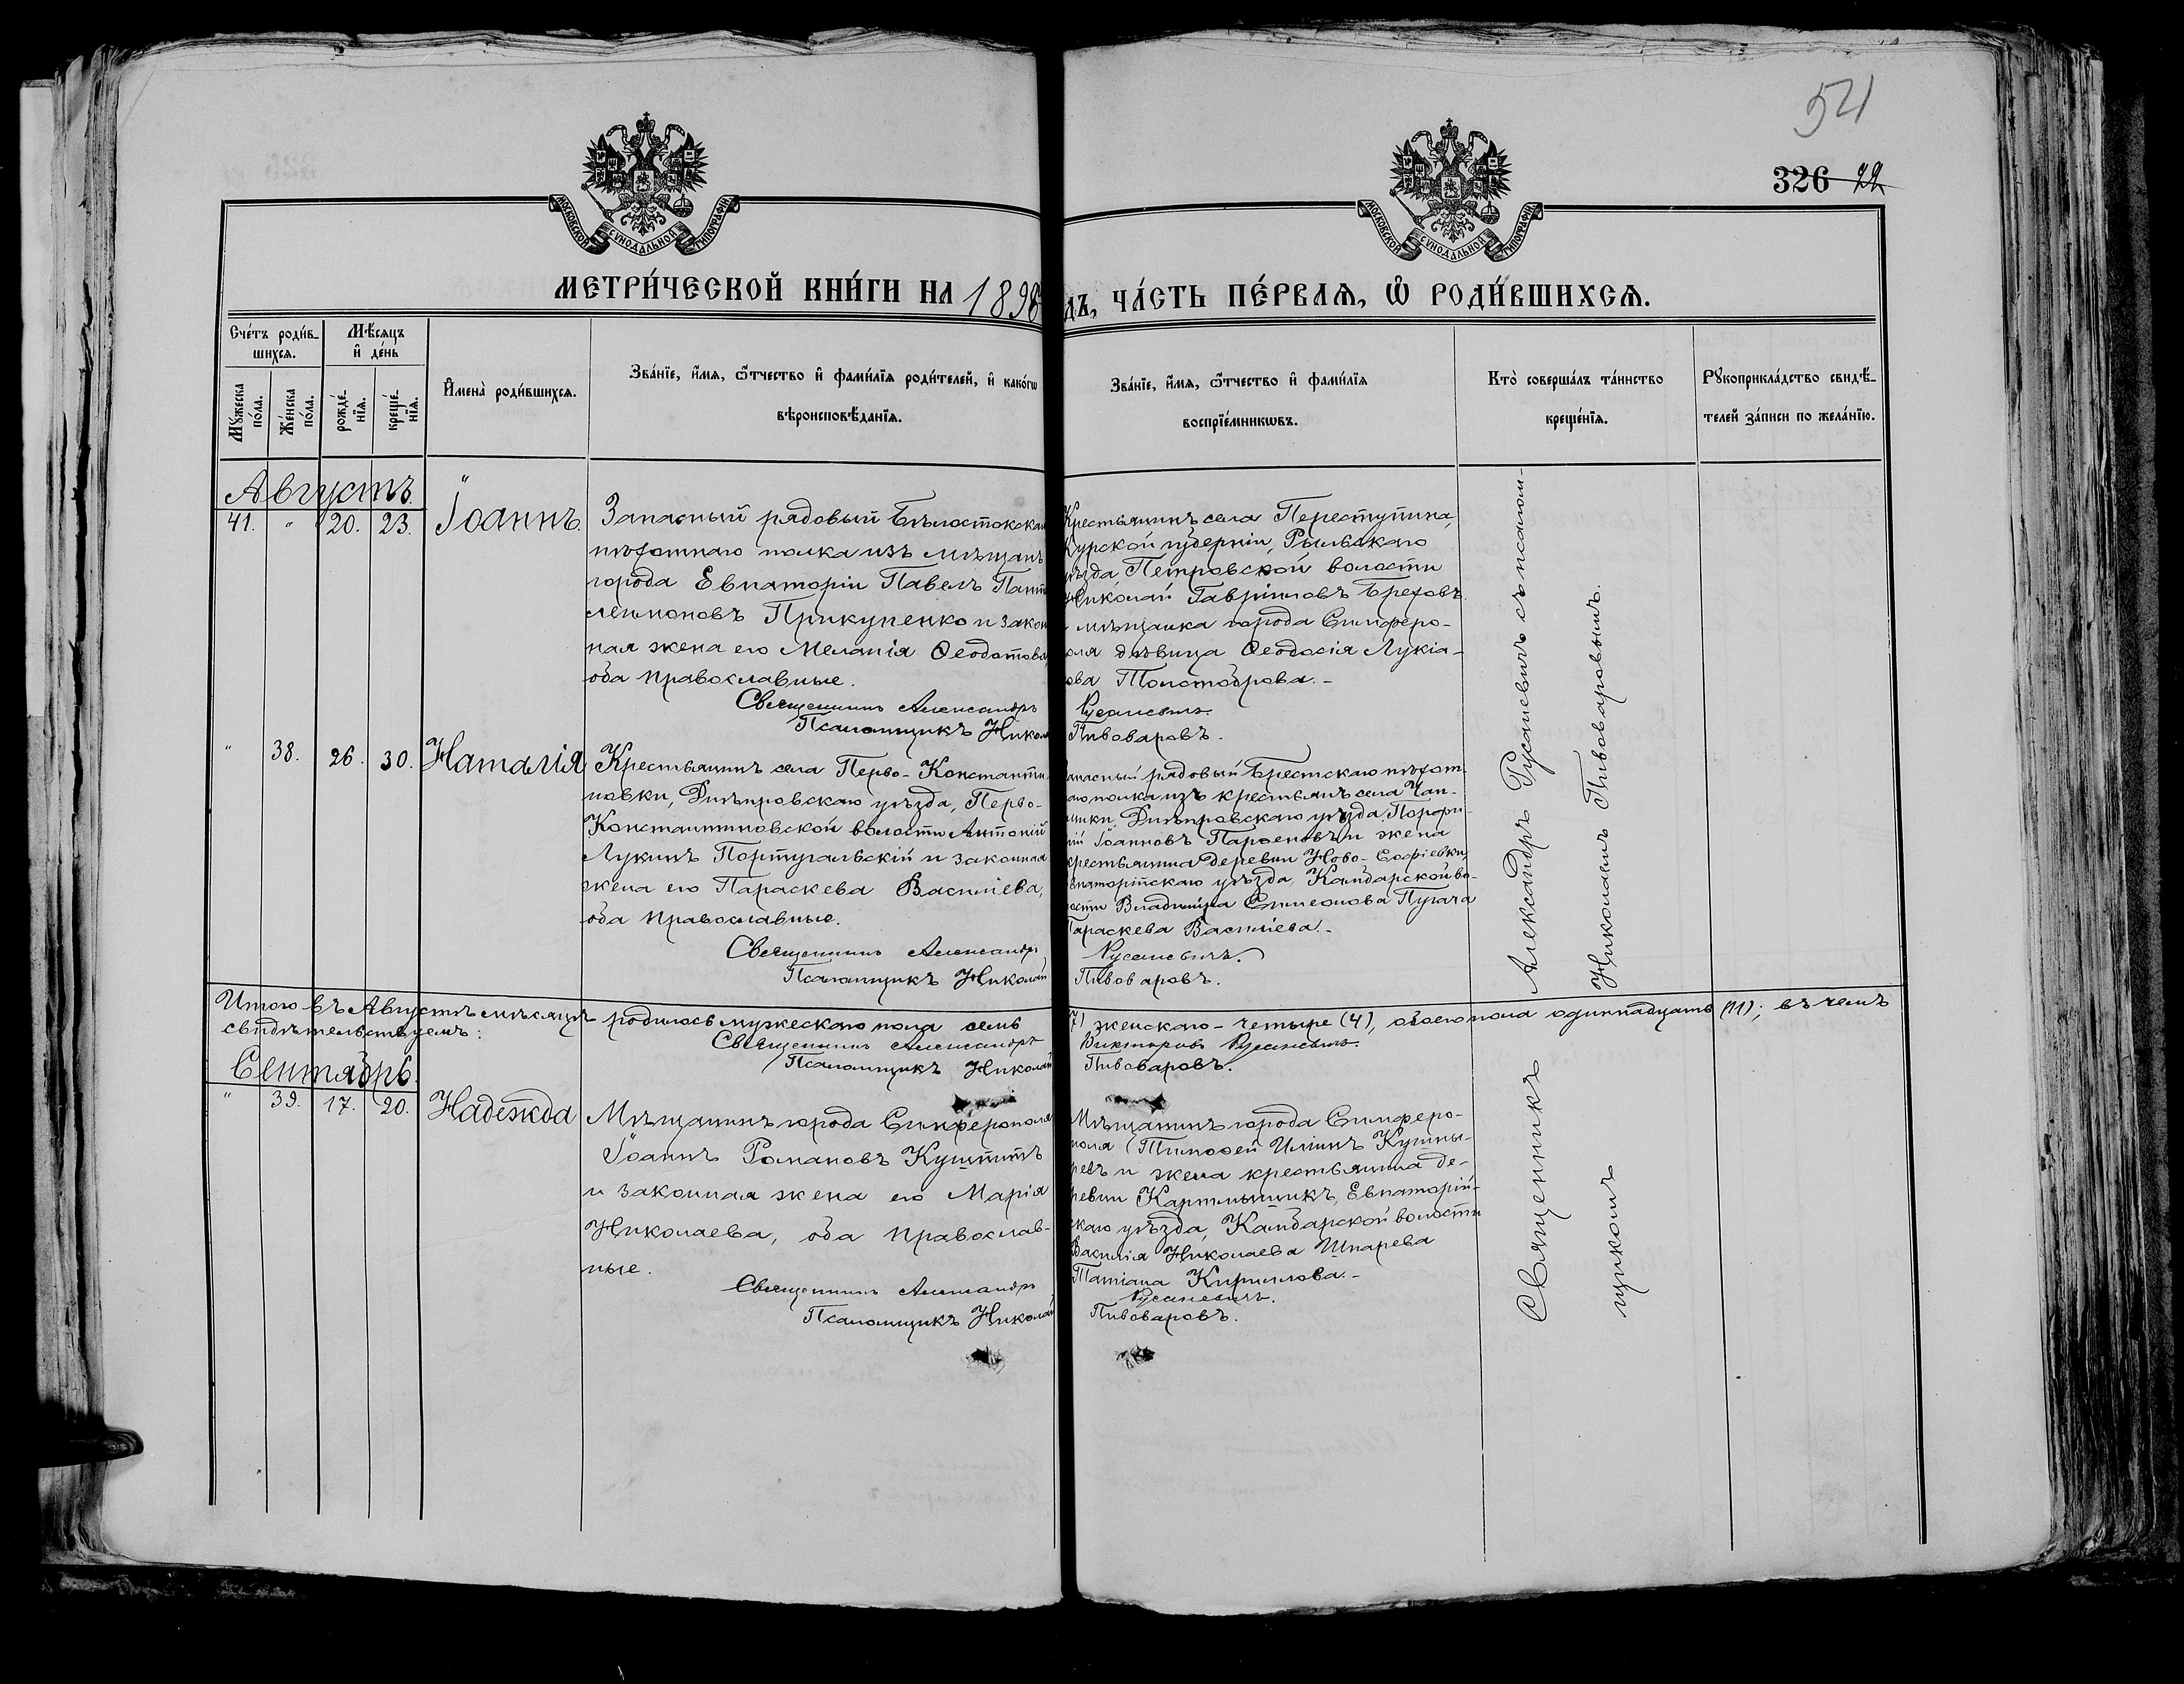 54
326 22
МОСКОВСКОЙ СѴНОДАЛЬНОЙ ТИПОГРАФІИ
МОСКОВСКОЙ СѴНОДАЛЬНОЙ ТИПОГРАФІИ
МЕТРИ́ЧЕСКОЙ КНИ́ГИ НА 1896
дъ, ЧА́СТЬ ПЕ́РВАЯ, Ѡ҆ РОДИ́ВШИХСЯ.
Сче́тъ роди́в-
шихся.
Мѣ́сяцъ
и҆ де́нь
Мꙋ́жеска
по́ла.
Же́нска
по́ла.
рожде́-
нїя.
креще́-
нїя.
И҆мена̀ роди́вшихся.
Зва́нїе, и҆́мя, ѻ҆́тчество и҆ фами́лїя роди́телей, и҆ како́гѡ
вѣроисповѣ́данїя.
Зва́нїе, и҆́мя, ѻ҆́тчество и҆ фами́лїя
воспрїе́мникѡвъ.
Кто̀ соверша́лъ та́инство
креще́нїя.
Рꙋкоприкла́дство свидѣ́-
телей за́писи по жела́нїю.
Августъ
41. " 20. 23. Іоаннъ.
Запасный рядовый Бѣлостокска
пѣхотнаго полка изъ мѣщанъ
города Евпаторіи Павелъ Пант
леимоновъ Прикупенко и закон
ная жена его Меланія Ѳеодотова,
оба православные.
Священникъ Александръ
Псаломщикъ Никол
Крестьянинъ села Переступина,
Курской губерніи, Рыльскаго
уѣзда, Петровской волости
Николай Гавріиловъ Бреховъ
и мѣщанка города Симферо-
оля дѣвица Ѳеодосія Лукіа-
ова Толстоброва.-
Русаневичъ.
Пивоваровъ.
" 38. 26. 30. Наталія
Крестьянинъ села Перво-Константи
новки, Днѣпровскаго уѣзда, Перво-
Константиновской волости Антоній
Лукинъ Португальскій и законная
жена его Параскева Василіева,
оба православные.
Священникъ Александръ
Псаломщикъ Николай
апасный рядовый Брестскаго пѣхот-
аго полка изъ крестьянъ села Чап-
линки, Днѣпровскаго уѣзда, Порфи-
рій Іоанновъ Парѳеновъ и жена
крестьянина деревни Ново-Софіевки,
впаторійскаго уѣзда, Камбарской во-
ости Владиміра Симеонова Пугача
Параскева Василіева.-
Русаневичъ.
Пивоваровъ.
Александръ Русаневичъ съ псалом-
Николаемъ Пивоваровымъ.
Итого въ Августѣ мѣсяцѣ родилось мужескаго пола семь
(7) женскаго - четыре (4), обоего пола одиннадцать (11); въ чемъ
свидѣтельствуемъ:
Священникъ Александръ
Викторовъ Русаневичъ.
Псаломщикъ Николай
Пивоваровъ.
Сентябрь.
" 39. 17. 20. Надежда
Мѣщанинъ города Симферополя
Іоаннъ Романовъ Кушпитъ
и законная жена его Марія
Николаева, оба православ-
ные.
Священникъ Александръ
Псаломщикъ Николай
Мѣщанинъ города Симферо-
поля Тимоѳей Иліинъ Кушны-
ревъ и жена крестьянина де-
ревни Картмышикъ, Евпаторій-
скаго уѣзда, Камбарской волости
Василія Николаева Шпарева
Татіана Кириллова.-
Русаневичъ.
Пивоваровъ.
Священникъ
щикомъ